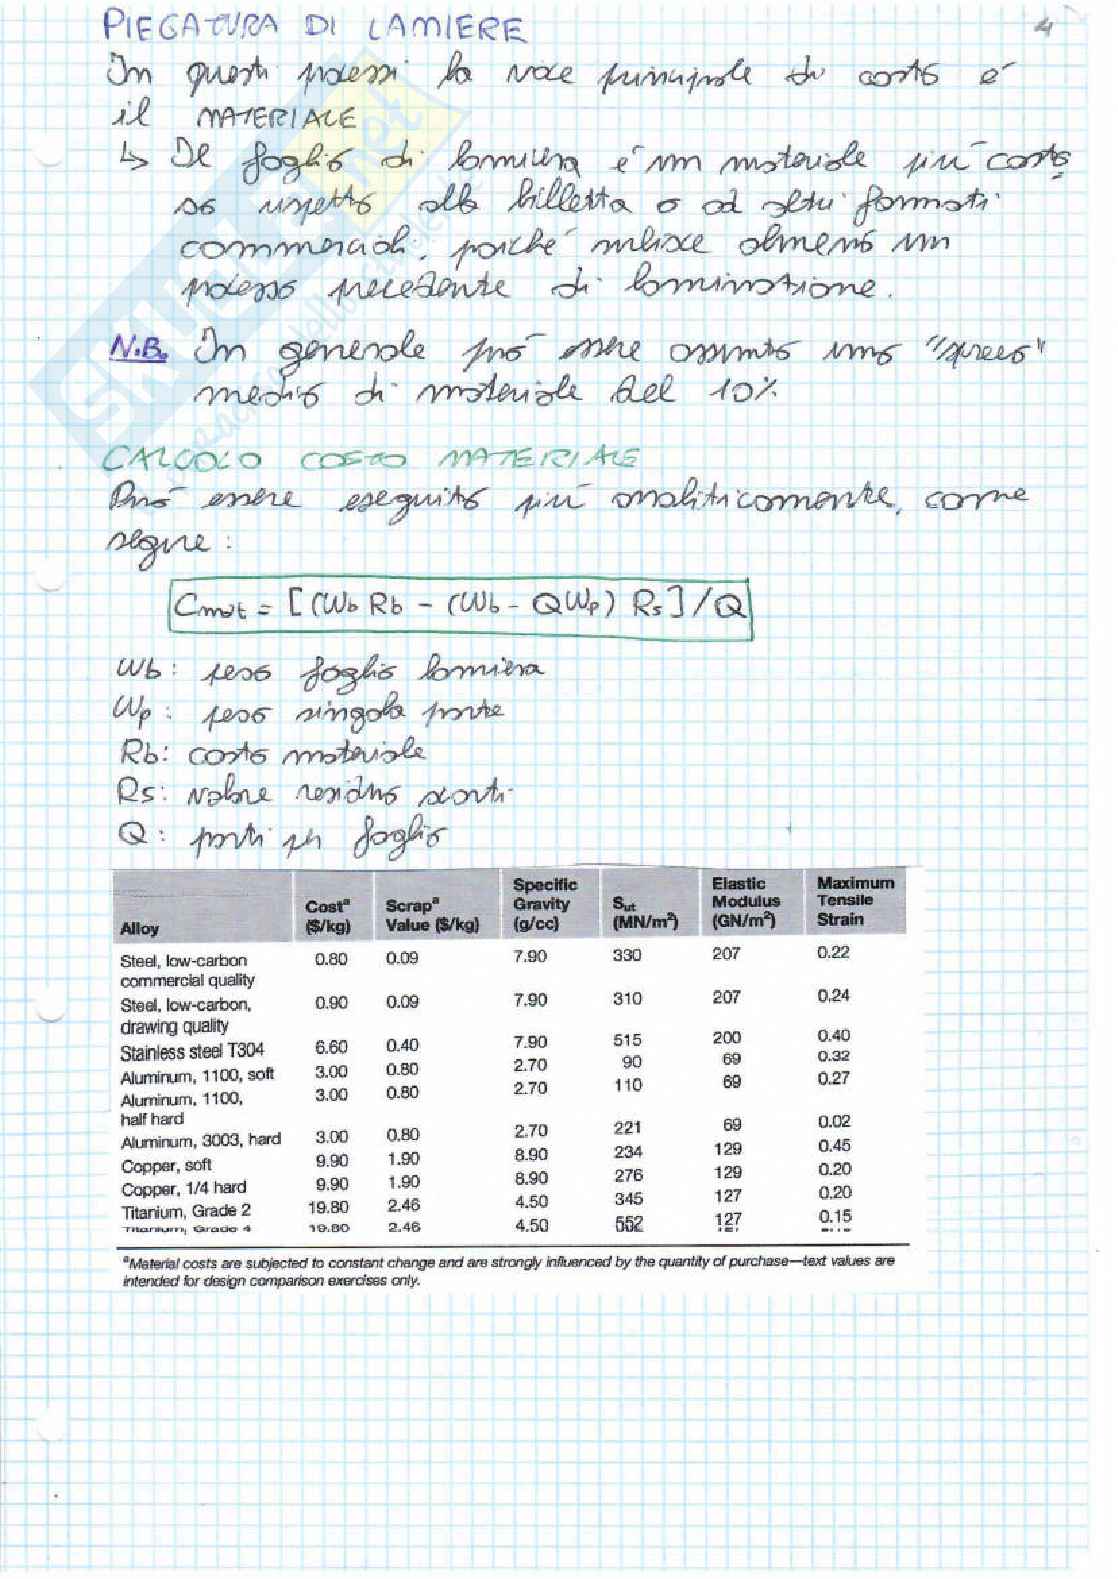 PIEGATURA DI LAMIERE
4
In questi processi la voce principale di costo è
il MATERIALE
↳ Il foglio di lamiera è un materiale più costo
so rispetto alla billetta o ad altri formati
commerciali, poiché subisce almeno un
processo precedente di laminazione.
N.B. In generale può essere assunto uno "spreco"
medio di materiale del 10%
CALCOLO COSTO MATERIALE
Può essere eseguito più analiticamente, come
segue:
Cmat = [(Wb Rb - (Wb - QWp) Rs] / Q
Wb: peso foglio lamiera
Wp: peso singola parte
Rb: costo materiale
Rs: valore residuo scarti
Q: parti per foglio
Alloy Costᵃ ($/kg) Scrapᵃ Value ($/kg) Specific Gravity (g/cc) Sut (MN/m²) Elastic Modulus (GN/m²) Maximum Tensile Strain
Steel, low-carbon 0.80 0.09 7.90 330 207 0.22
commercial quality
Steel, low-carbon, 0.90 0.09 7.90 310 207 0.24
drawing quality
Stainless steel T304 6.60 0.40 7.90 515 200 0.40
Aluminum, 1100, soft 3.00 0.80 2.70 90 69 0.32
Aluminum, 1100, 3.00 0.80 2.70 110 69 0.27
half hard
Aluminum, 3003, hard 3.00 0.80 2.70 221 69 0.02
Copper, soft 9.90 1.90 8.90 234 129 0.45
Copper, 1/4 hard 9.90 1.90 8.90 276 129 0.20
Titanium, Grade 2 19.80 2.46 4.50 345 127 0.20
Titanium, Grade 4 19.80 2.46 4.50 552 127 0.15
ᵃMaterial costs are subjected to constant change and are strongly influenced by the quantity of purchase—text values are
intended for design comparison exercises only.